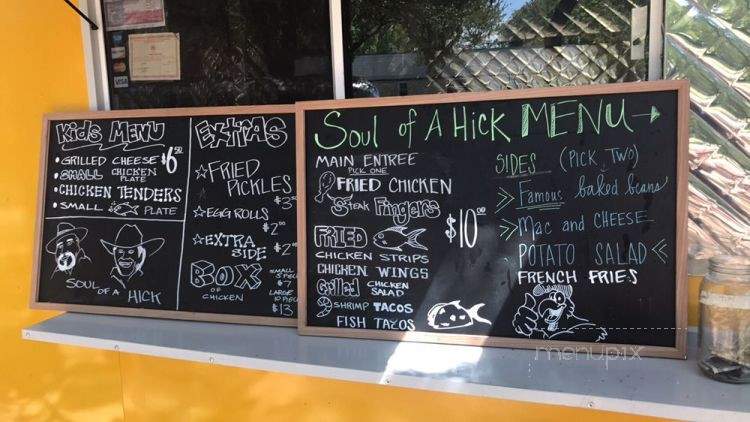 KiDS MENU
GRILLED CHEESE
$6.50
SMALL CHICKEN PLATE
CHICKEN TENDERS
SMALL PLATE
SOUL OF A HICK
EXTRAS
FRIED PICKLES
$3
EGG ROLLS
$2.00
EXTRA SIDE
$2
BOX OF CHICKEN
SMALL
5 PIECE
$7
LARGE
10 PIECE
$13
Soul of A Hick MENU
MAIN ENTREE
PICK ONE
FRIED CHICKEN
Steak Fingers
$10.00
FRIED
CHICKEN STRIPS
CHICKEN WINGS
Grilled CHICKEN SALAD
SHRIMP TACOS
FISH TACOS
SIDES (PICK TWO)
Famous baked beans
Mac and CHEESE
POTATO SALAD
FRENCH FRIES
VISA
menupix